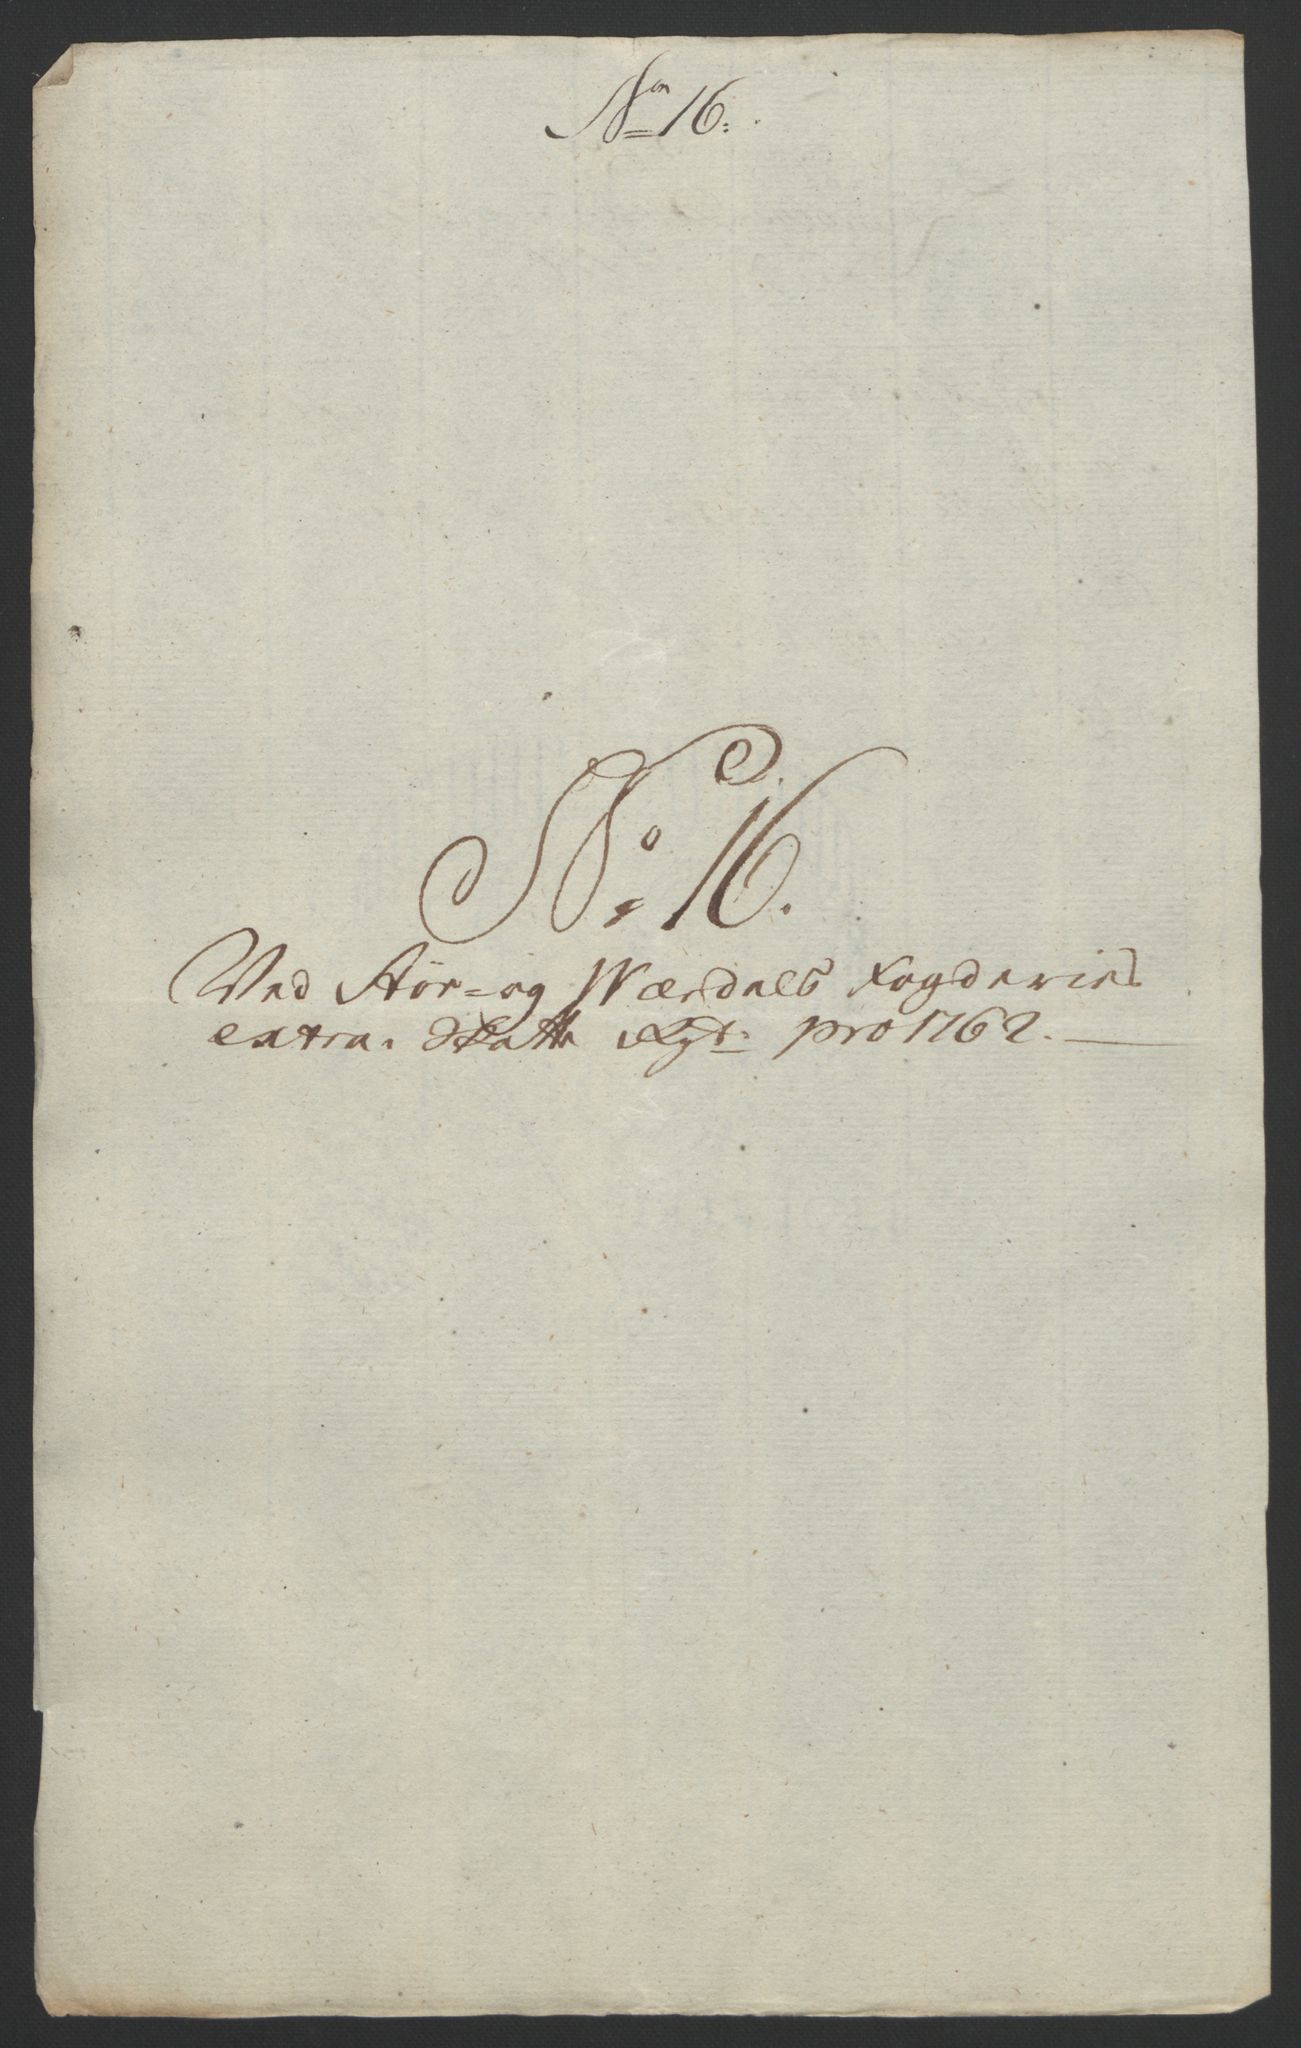 No 16.
No. 16.
Ved Stör- og Wærdals Fogderies
extra. Skatte Rgt. pro 1762.